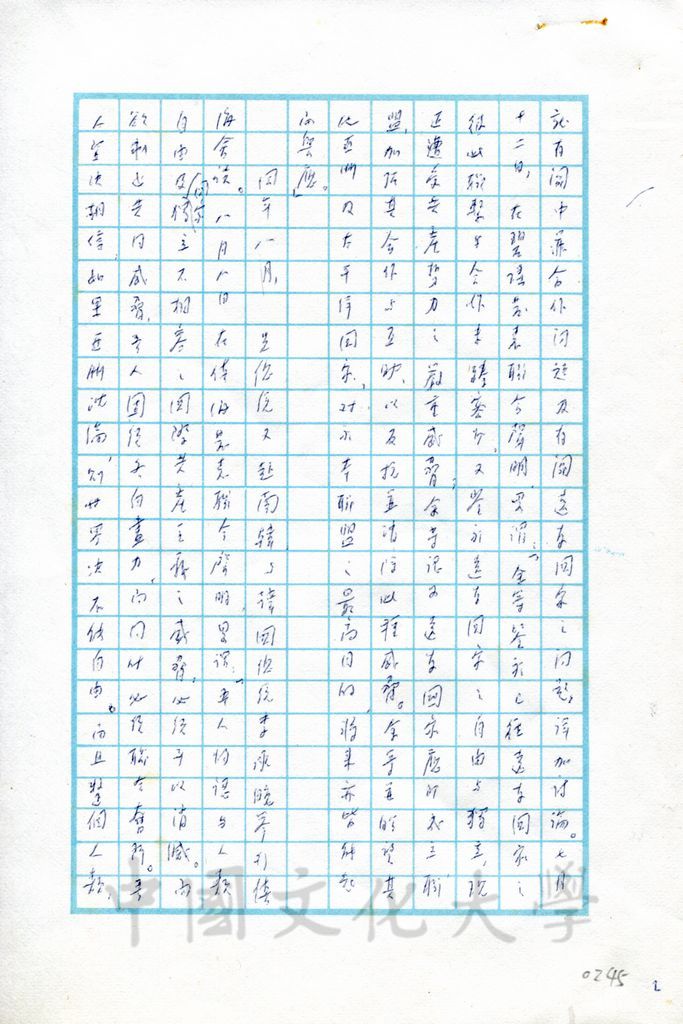 就有關中菲合作問題及有關遠東國家之問題，詳加討論。七月
十二日，在碧瑤發表聯合聲明，略謂：「余等鑒於已往遠東國家之
彼此聯繫與合作未臻密切，又鑒於遠東國家之自由與獨立，現
正遭受共產勢力之嚴重威脅，余等認為遠東國家應即成立聯
盟，加強其合作與互助，以反抗並消除此種威脅。余等並盼望其
他亞洲及太平洋國家，對於本聯盟之最高目的，將來亦皆能起
而響應。」
同年八月，總統又赴南韓，與韓國總統李承晚舉行鎮
海會談。八月八日在鎮海發表聯合聲明，略謂：「吾人均認與人類
自由及(國家)獨立不相容之國際共產主義之威脅，必須予以消滅。而
欲制止共同威脅，吾人固須各自盡力，而同時必須聯合奮鬥。吾
人堅決相信，如果亞洲沈淪，則世界決不能自由。而且整個人類，
中國文化大學
0245
2